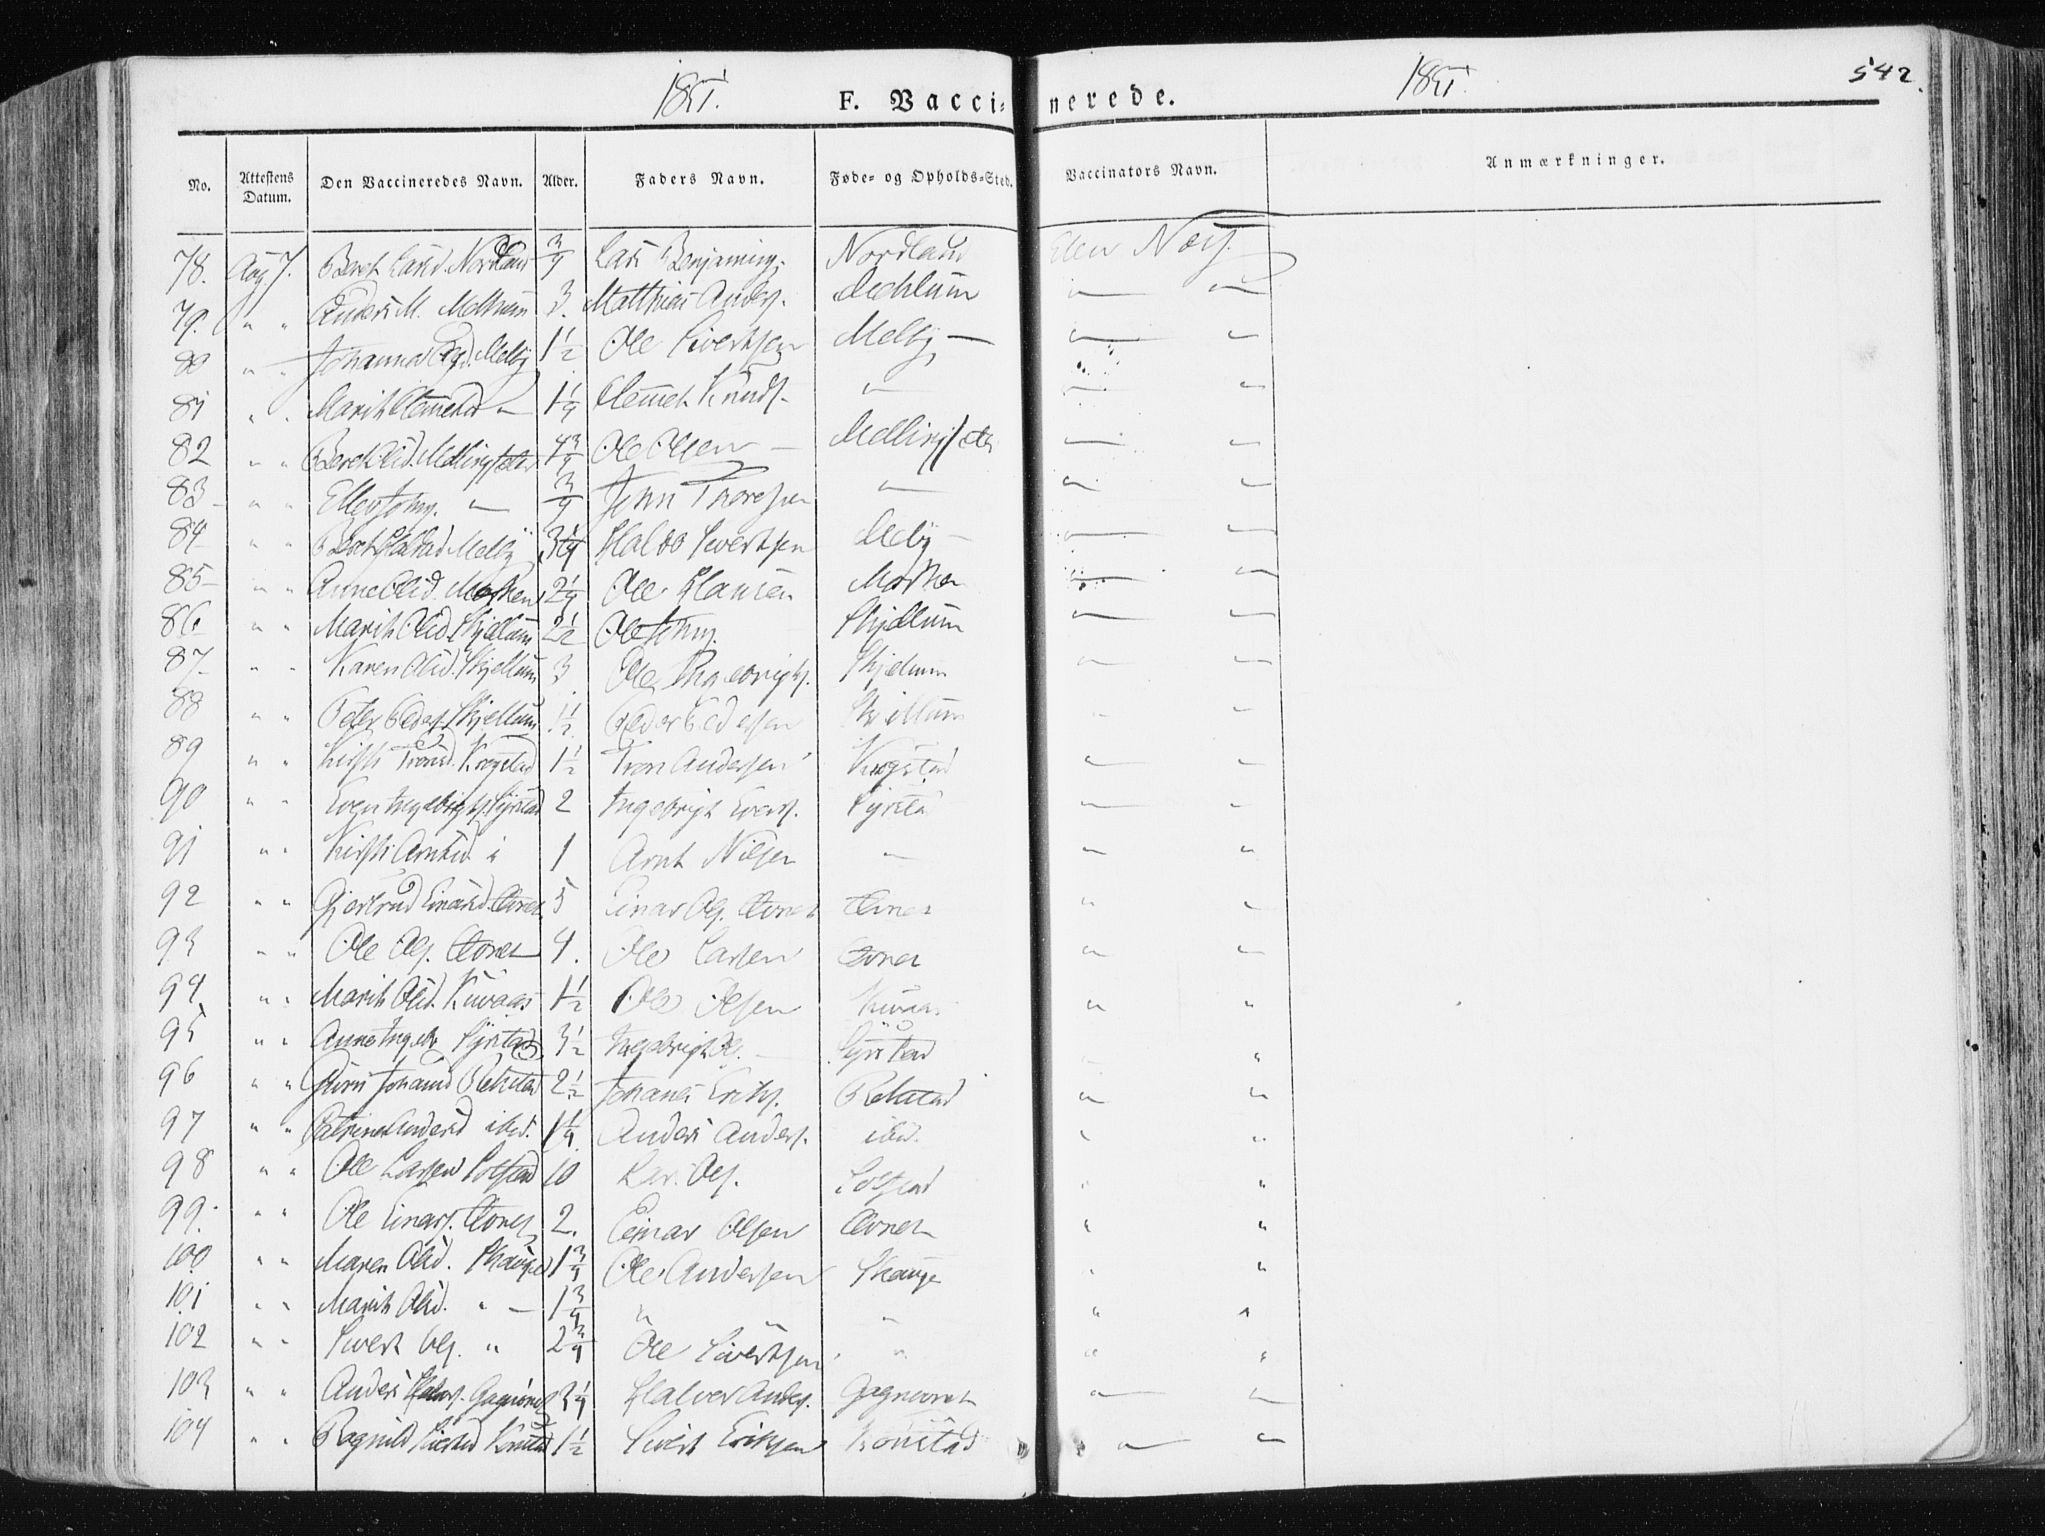 1851. F. Vaccinerede. 1851. 542.
No. Attestens Datum. Den Vaccineredes Navn. Alder. Faders Navn. Føde- og Opholds-Sted. Vaccinators Navn. Anmærkninger.
78. Aug 7. Beret Larsd. Nordland 3/4 Lars Benjamins. Nordland
79. " " Anders M. Melhuum 3. Matthias Anders. Mehluum " "
80 " " Johanna Melby 1 1/2 Ole Sivertsen Melby — " "
81 " " Marit Clemetsd — 1 1/4 Clemet Knuds. " " "
82 " " Beret Olsd. Mellingsæter 4 3/4 Ole Olsen — Mellingsæter " "
83 " " Ellev Johns. — 3/4 John Thoresen " " "
84 " " Beret Melby 3 1/4 Sivertsen Melby — " "
85 " " Anne Olsd. 2 1/4 Ole Hansen " "
86 " " Marit Olsd. Skjellum 2 1/2 Ole Johns. Skjellum " "
87 " " Karen Olsd. Skjellum 3 Ole Ingebrigts. Skjellum " "
88 " " Peter Peders. Skjellum 1 1/2 Peder Pedersen Skjellum " "
89 " " Kirsti Tronsd. Krogstad 1 1/2 Tron Andersen Krogstad " "
90 " " Even Ingebrigts. Syrstad 2 Ingebrigt Evens. Syrstad " "
91 " " Kirsti Arntsd " 1 Arnt Nilsen " " "
92 " " Gjertrud Einarsd. Evnet 5 Einar Ols. Evnet Evnet " "
93 " " Ole Ols. Evnet 4. Ole Larsen Evnet " "
94 " " Marit Olsd. Kuvaas 1 1/2 Ole Olsen Kuvaas " "
95 " " Anne Syrstad 3 1/2 Ingebrigt Ol. — Syrstad "
96 " " Johansd Rekstad 2 1/2 Johanes Eriks. Rekstad " "
97 " " Andersd ibid. 1 1/4 Anders Anders. ibid. " "
98 " " Ole Larsen Solstad 10 Lars Ols. Solstad " "
99. " " Ole Einars. Evnet 2. Einar Olsen Evnet " "
100 " " Maren Olsd. Skauge 1 3/4 Ole Andersen Skauge " "
101 " " Marit Olsd. " — 1 3/4 " " " "
102 " " Sivert Ols. " 2 3/4 Ole Sivertsen " " "
103 " " Anders Halvors. 3 1/4 Halvor Anders. " "
104 " " Ragnild Sivertsd 1 1/2 Sivert Eriksen " "